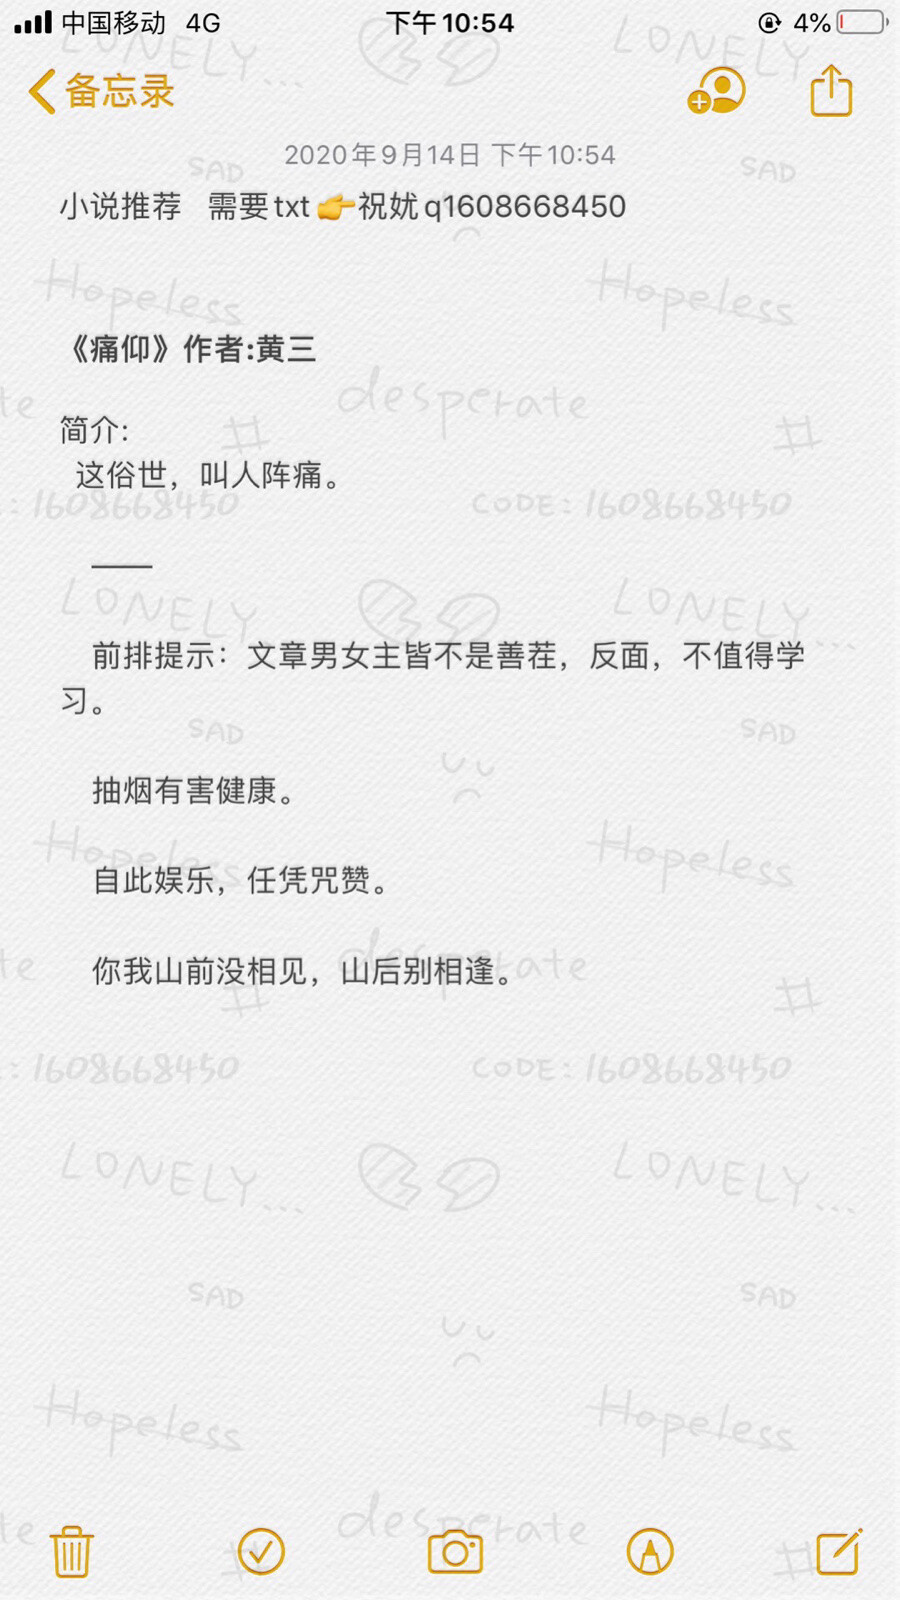 中国移动 4G 下午10:54 4%
备忘录
2020年9月14日 下午10:54
小说推荐 需要txt👉祝妩q1608668450
《痛仰》作者:黄三
简介:
这俗世，叫人阵痛。
——
前排提示：文章男女主皆不是善茬，反面，不值得学
习。
抽烟有害健康。
自此娱乐，任凭咒赞。
你我山前没相见，山后别相逢。
LONELY...
LONELY...
SAD
SAD
Hopeless
Hopeless
te
desperate
#
#
: 1608668450
CODE: 1608668450
LONELY...
LONELY...
SAD
SAD
Hopeless
Hopeless
te
desperate
#
#
: 1608668450
CODE: 1608668450
LONELY...
LONELY...
SAD
SAD
Hopeless
Hopeless
te
desperate
#
#